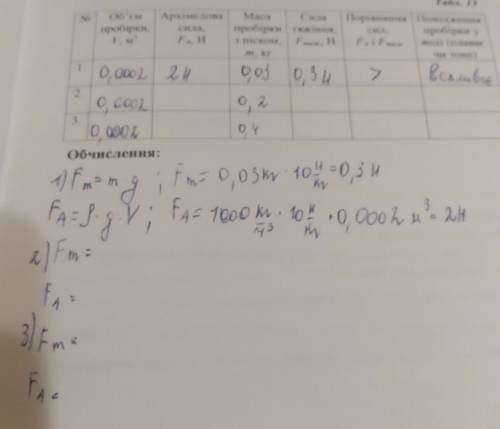 Табл. 13
№ Об'єм пробірки, V, м³ Архімедова сила, Fₐ, Н Маса пробірки з піском, m, кг Сила тяжіння, Fтяж, Н Порівняння сил, Fₐ і Fтяж Поводження пробірки у воді (плаває чи тоне)
1 0,0002 2Н 0,03 0,3Н > Вспливає
2 0,0002 0,2
3. 0,0002 0,4
Обчислення:
1) Fm = m g ; Fm = 0,03кг · 10 Н/кг = 0,3Н
FA = ρ · g · V ; FA = 1000 кг/м³ · 10 Н/кг · 0,0002 м³ = 2Н
2) Fm =
FA =
3) Fm =
FA =